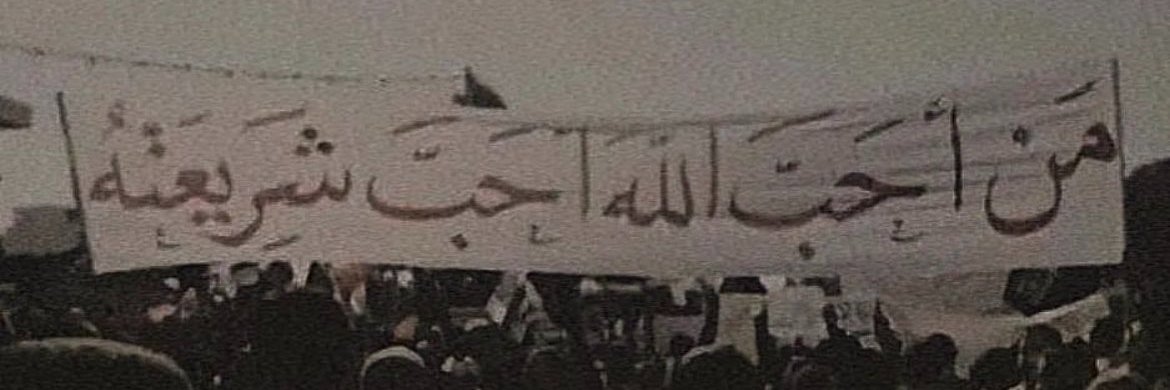 مَنْ أَحَبَّ اللَّهَ احَبَّ شَرِيعَتَهُ